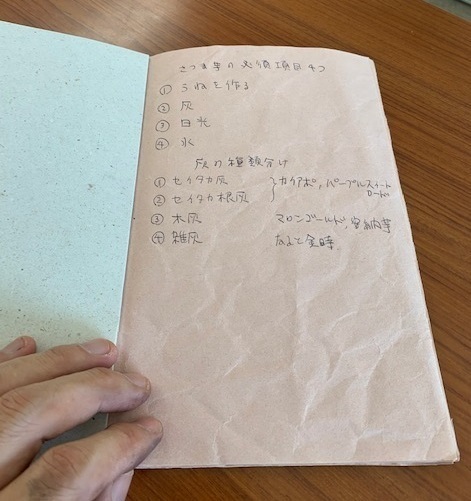 さつま芋の必須項目4つ
① うねを作る
② 灰
③ 日光
④ 水
灰の種類分け
① セイタカ灰 } カイアポ、パープルスイート
② セイタカ根灰 ロード
③ 木灰 マロンゴールド、安納芋
④ 雑灰 なると金時